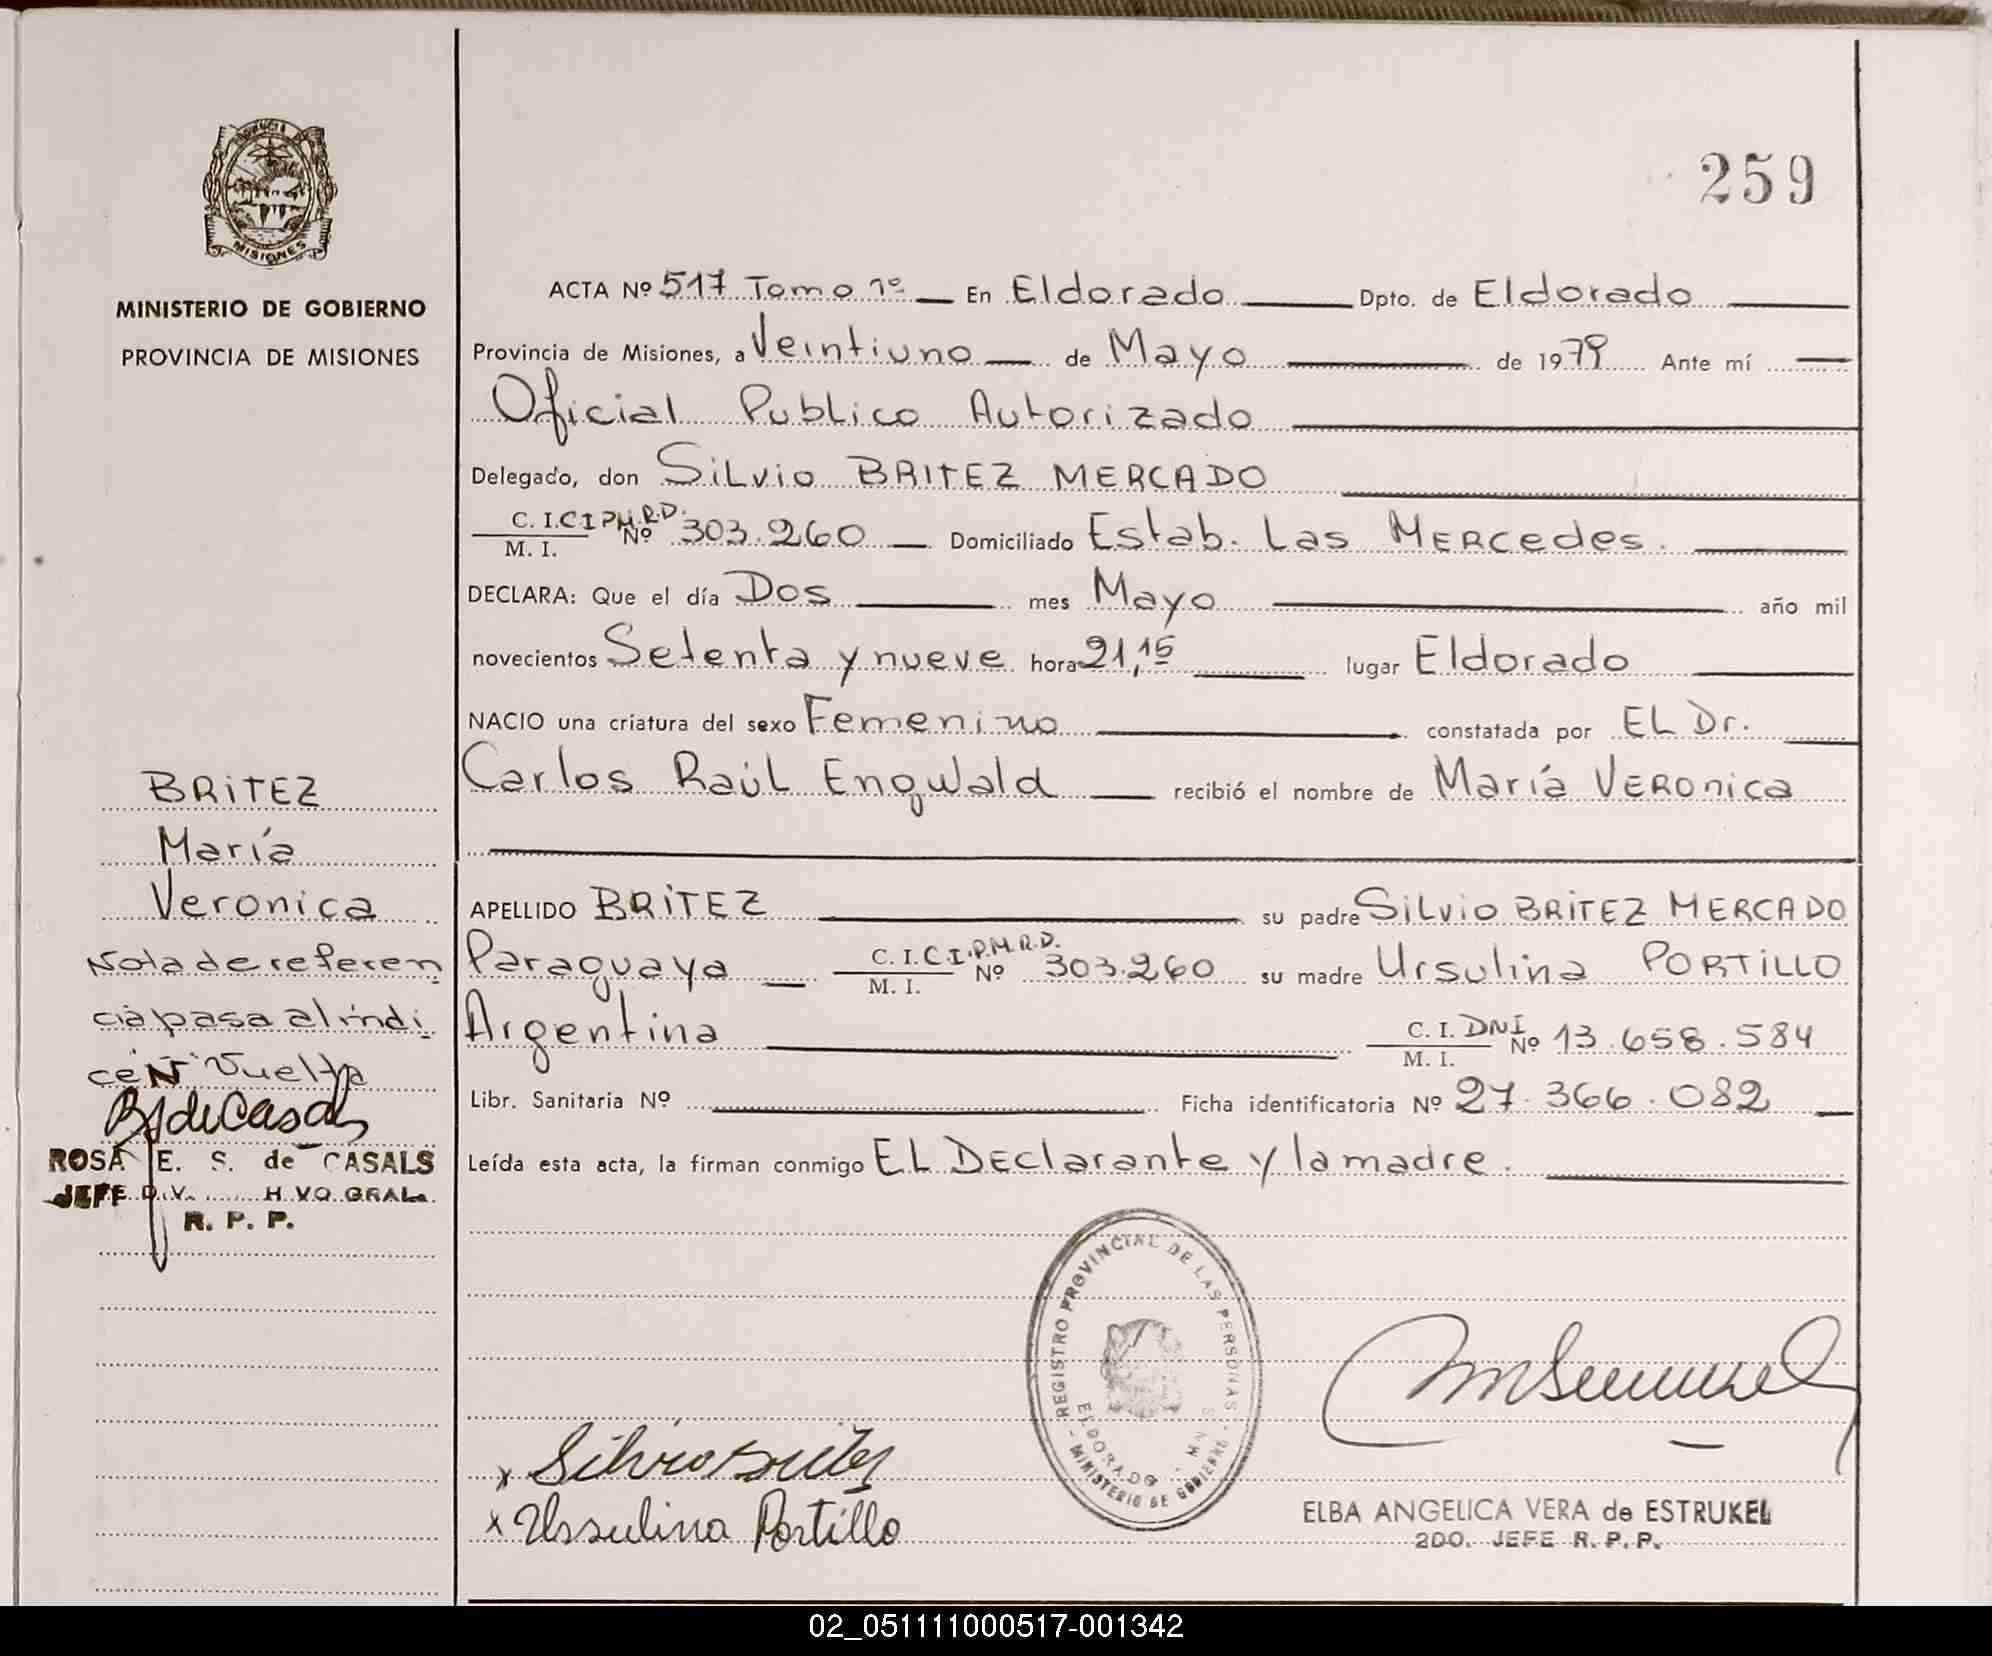 259
PROVINCIA DE
MISIONES
MINISTERIO DE GOBIERNO
PROVINCIA DE MISIONES
ACTA Nº 517 Tomo 1º En Eldorado Dpto. de Eldorado
Provincia de Misiones, a Veintiuno de Mayo de 1979 Ante mí
Oficial Publico Autorizado
Delegado, don Silvio BRITEZ MERCADO
C. I. C I P.M.R.D. Nº 303.260 Domiciliado Estab. Las Mercedes.
M. I.
DECLARA: Que el día Dos mes Mayo año mil
novecientos Setenta y nueve hora 21,15 lugar Eldorado
NACIO una criatura del sexo Femenino constatada por EL Dr.
Carlos Raúl Engwald recibió el nombre de María Veronica
APELLIDO BRITEZ su padre Silvio BRITEZ MERCADO
Paraguaya C. I. C.I.P.M.R.D. Nº 303.260 su madre Ursulina PORTILLO
M. I.
Argentina C. I. DNI Nº 13.658.584
M. I.
Libr. Sanitaria Nº Ficha identificatoria Nº 27.366.082
Leída esta acta, la firman conmigo EL Declarante y la madre.
BRITEZ
María
Veronica
Nota de referen
cia pasa al indi
ce N Vuelta
ROSA E. S. de CASALS
JEFE DIV. H VO GRAL.
R. P. P.
REGISTRO PROVINCIAL DE LAS PERSONAS
ELDORADO - MNS
MINISTERIO DE GOBIERNO
x Silvio Britez
x Urssulina Portillo
ELBA ANGELICA VERA de ESTRUKEL
2DO. JEFE R. P. P.
02_051111000517-001342